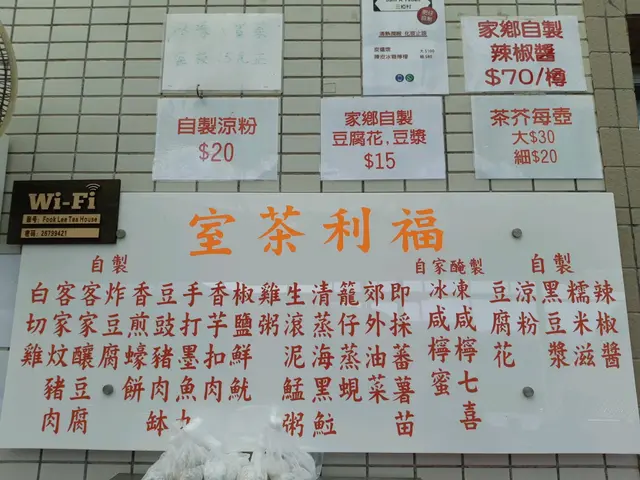 三椏村
清熱潤喉 化氣止咳
家鄉自製
辣椒醬
$70/樽
自製涼粉
$20
家鄉自製
豆腐花,豆漿
$15
茶芥每壺
大$30
細$20
Wi-Fi
Fook Lee Tea House
密碼:26799421
福利茶室
自製
辣椒醬
糯米滋
黑豆漿
涼粉
豆腐花
自家醃製
凍咸檸七喜
冰咸檸蜜
即採蕃薯苗
郊外油菜
籠仔蒸蜆
清蒸海黑
生滾泥鯭粥
雞粥
椒鹽鮮魷
香芋扣肉
手打墨魚
豆豉豬肉缽
香煎蠔餅
自製
炸豆腐
客家釀豆腐
客家炆豬肉
白切雞